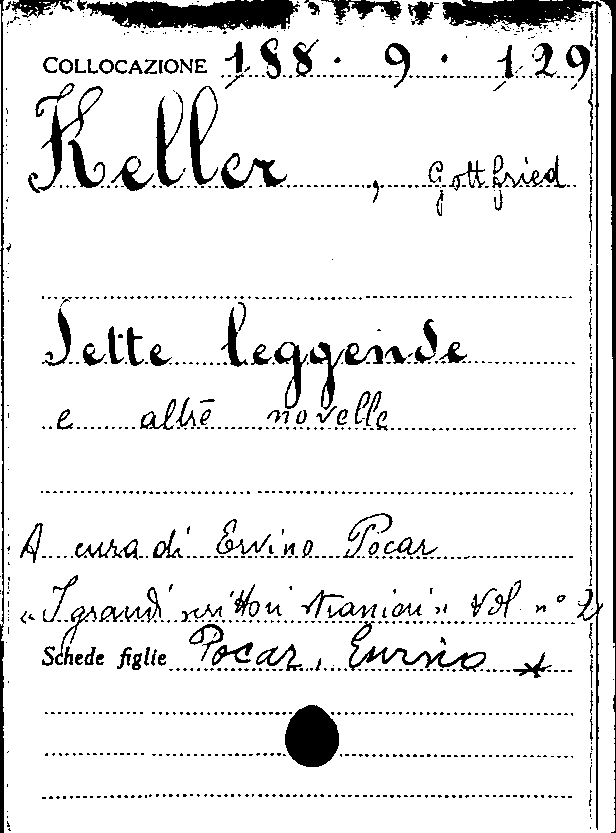 COLLOCAZIONE 188 . 9 . 129
Keller , Gottfried
Sette leggende
e altre novelle
A cura di Ervino Pocar
"I grandi scrittori stranieri" Vol. n° 2
Schede figlie Pocar, Ervino